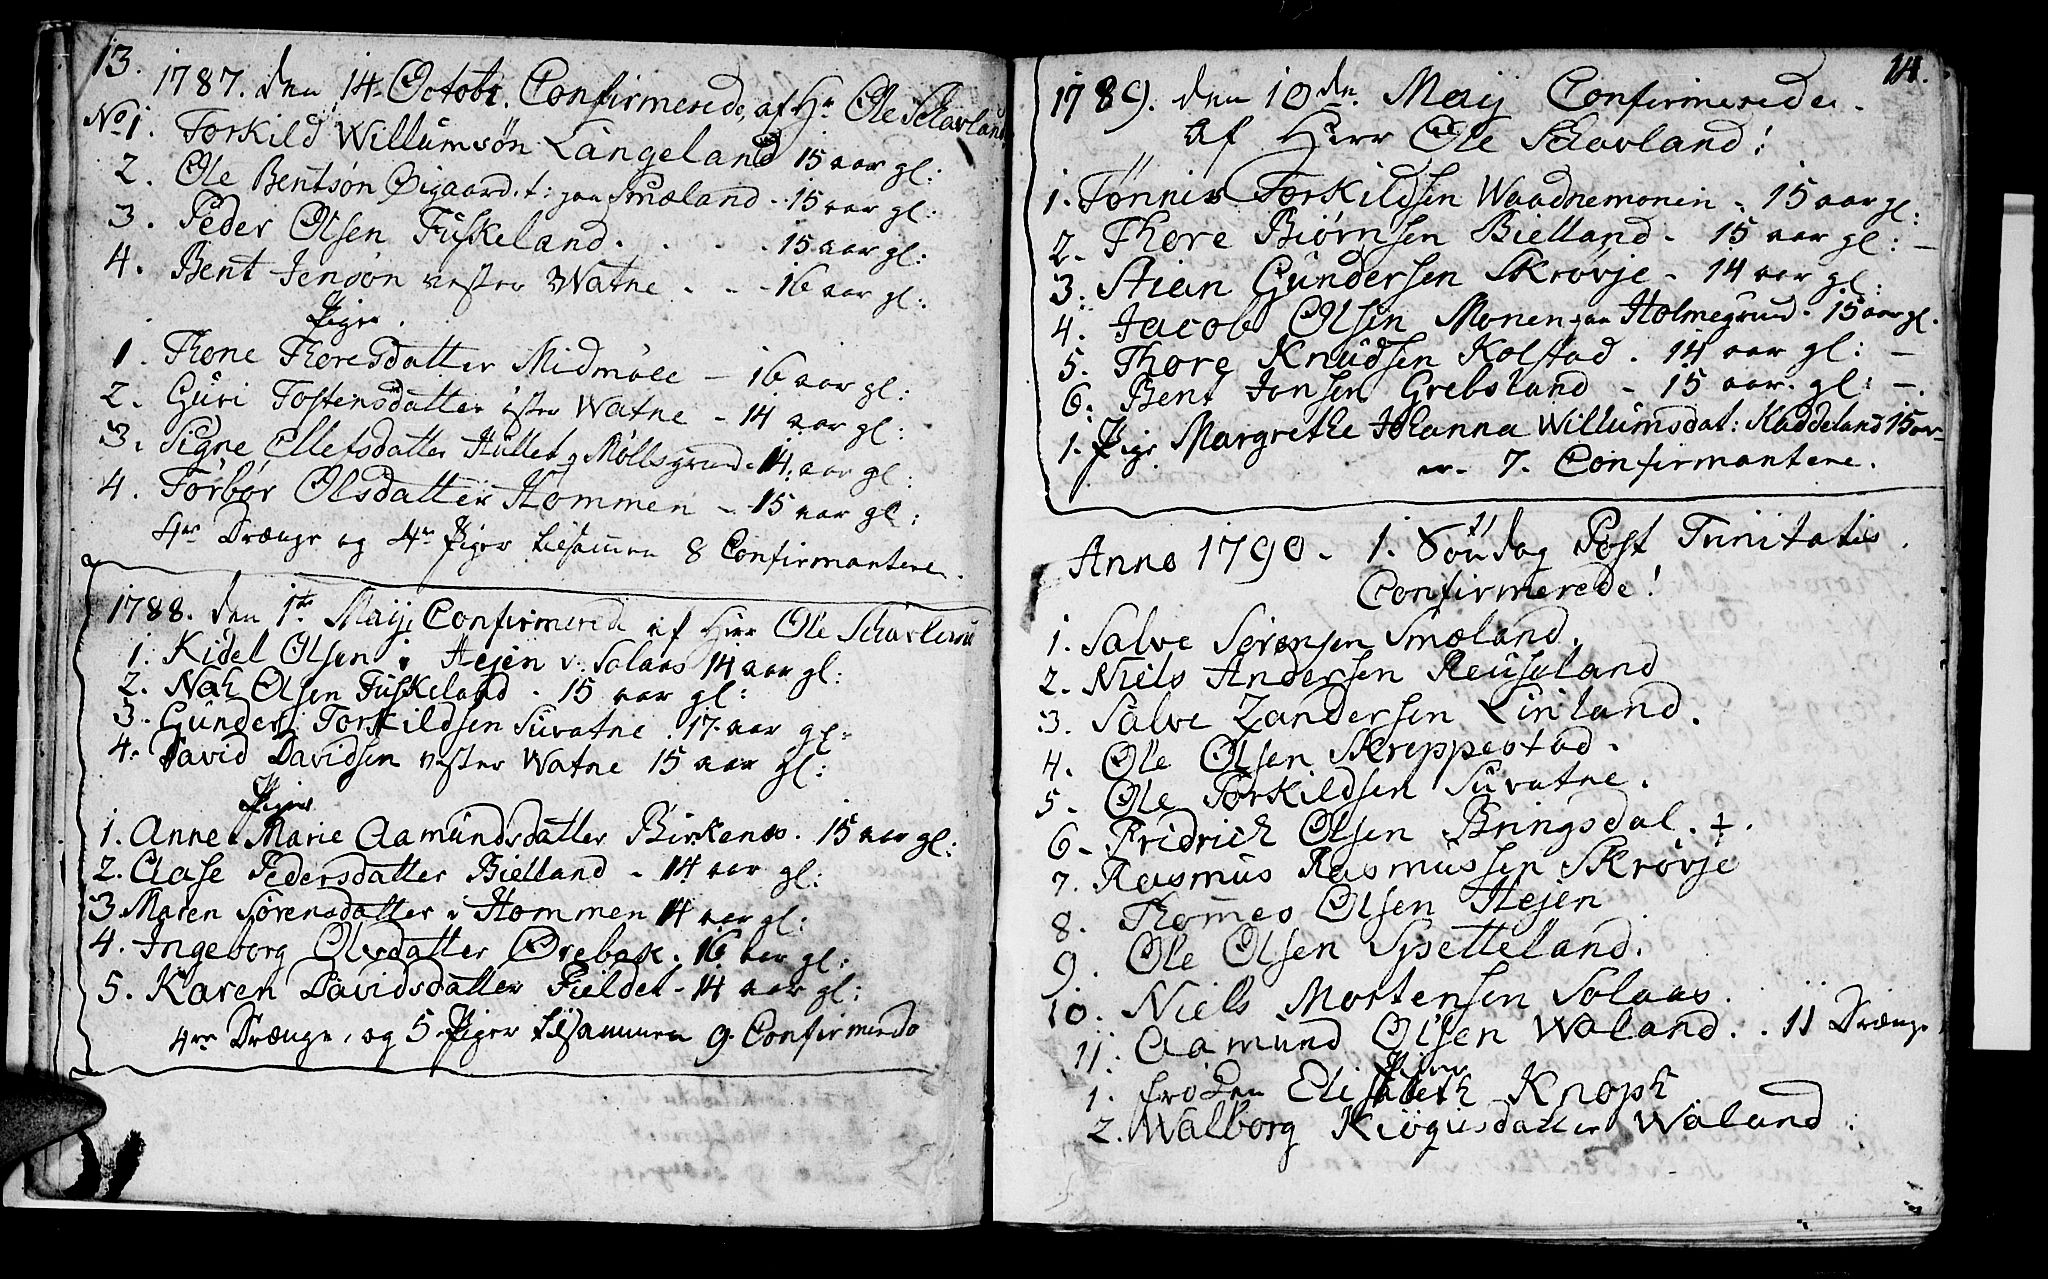 13.
1787. den 14. Octobr. Confirmerede, af Hr Ole Schavland
No 1. Torkild Willumsøn Langeland 15 aar gl:
2. Ole Bentsøn Øigaard. t: paa Smæland - 15 aar gl:
3. Peder Olsen Fuskeland. . . . 15 aar gl:
4. Bent Jensøn vester Watne . - - 16 aar gl:
Piger.
1. Thone Thoresdatter Midmöee - 16 aar gl:
2. Guri Tostensdatter Watne - 14 aar gl:
3. Signe Ellefsdatter Møllsgrund - 14. aar gl:
4. Torbør Olsdatter Hommen - 15 aar gl:
4re Drænge og 4re Piger tilsammen 8 Confirmantere.
1788. den 1te Maij, Confirmerede af Herr Ole Schavland
1. Kidel Olsen i Hejen v: Solaas 14 aar gl:
2. Noh Olsen Fuskeland - 15 aar gl:
3. Gunder Torkildsen Suvatne. 17. aar gl:
4. David Davidsen vester Watne 15 aar gl:
Piger
1. Anne Marie Aamundsdatter Birkenæs. 15 aar gl:
2. Aase Pedersdatter Bielland - 14 aar gl:
3. Maren Sørensdatter i Hommen 14 aar gl:
4. Ingeborg Olesdatter Ørebek. 16 aar gl:
5. Karen Davidsdatter Fieldet - 14 aar gl:
4re Drænge, og 5. Piger tilsammen 9. Confirmerede
14.
1789. den 10de. Maij Confirmerede.
af Herr Ole Schavland!
1. Tønnes Torkildsen Waadnemonen - 15 aar gl:
2. Thore Biørnsen Bielland - 15 aar gl: -
3. Stian Gundersen Skrøvje - 14 aar gl:
4. Jacob Olsen Monen paa Holmegrund. 15 aar gl.
5. Thore Knudsen Kolstad. 14 aar gl: -
6. Bent Jonsen Grebsland - 15 aar. gl: -.
1. Pige Margrethe Johanna Willumsdat: Kaddeland 15 aar
er - 7. Confirmantere.
Anno 1790 - 1. Søndag Post Trinitatis.
Confirmerede!
1. Salve Sørensen Smæland.
2. Niels Andersen Reuseland
3. Salve Zandersen Linland.
4. Ole Olsen Skreppestad.
5. Ole Torkildsen Suvatne.
6. Fridrich Olsen Bringsdal. +.
7. Rasmus Rasmussen Skrøvje
8. Thomes Olsen Hejen
9. Ole Olsen Spetteland.
10. Niels Mortensen Solaas.
11. Aamund Olsen Waland. . 11 Drænge
Piger
1. Frøken Elisabeth Knoph
2. Walborg Kiøgesdatter Waland: